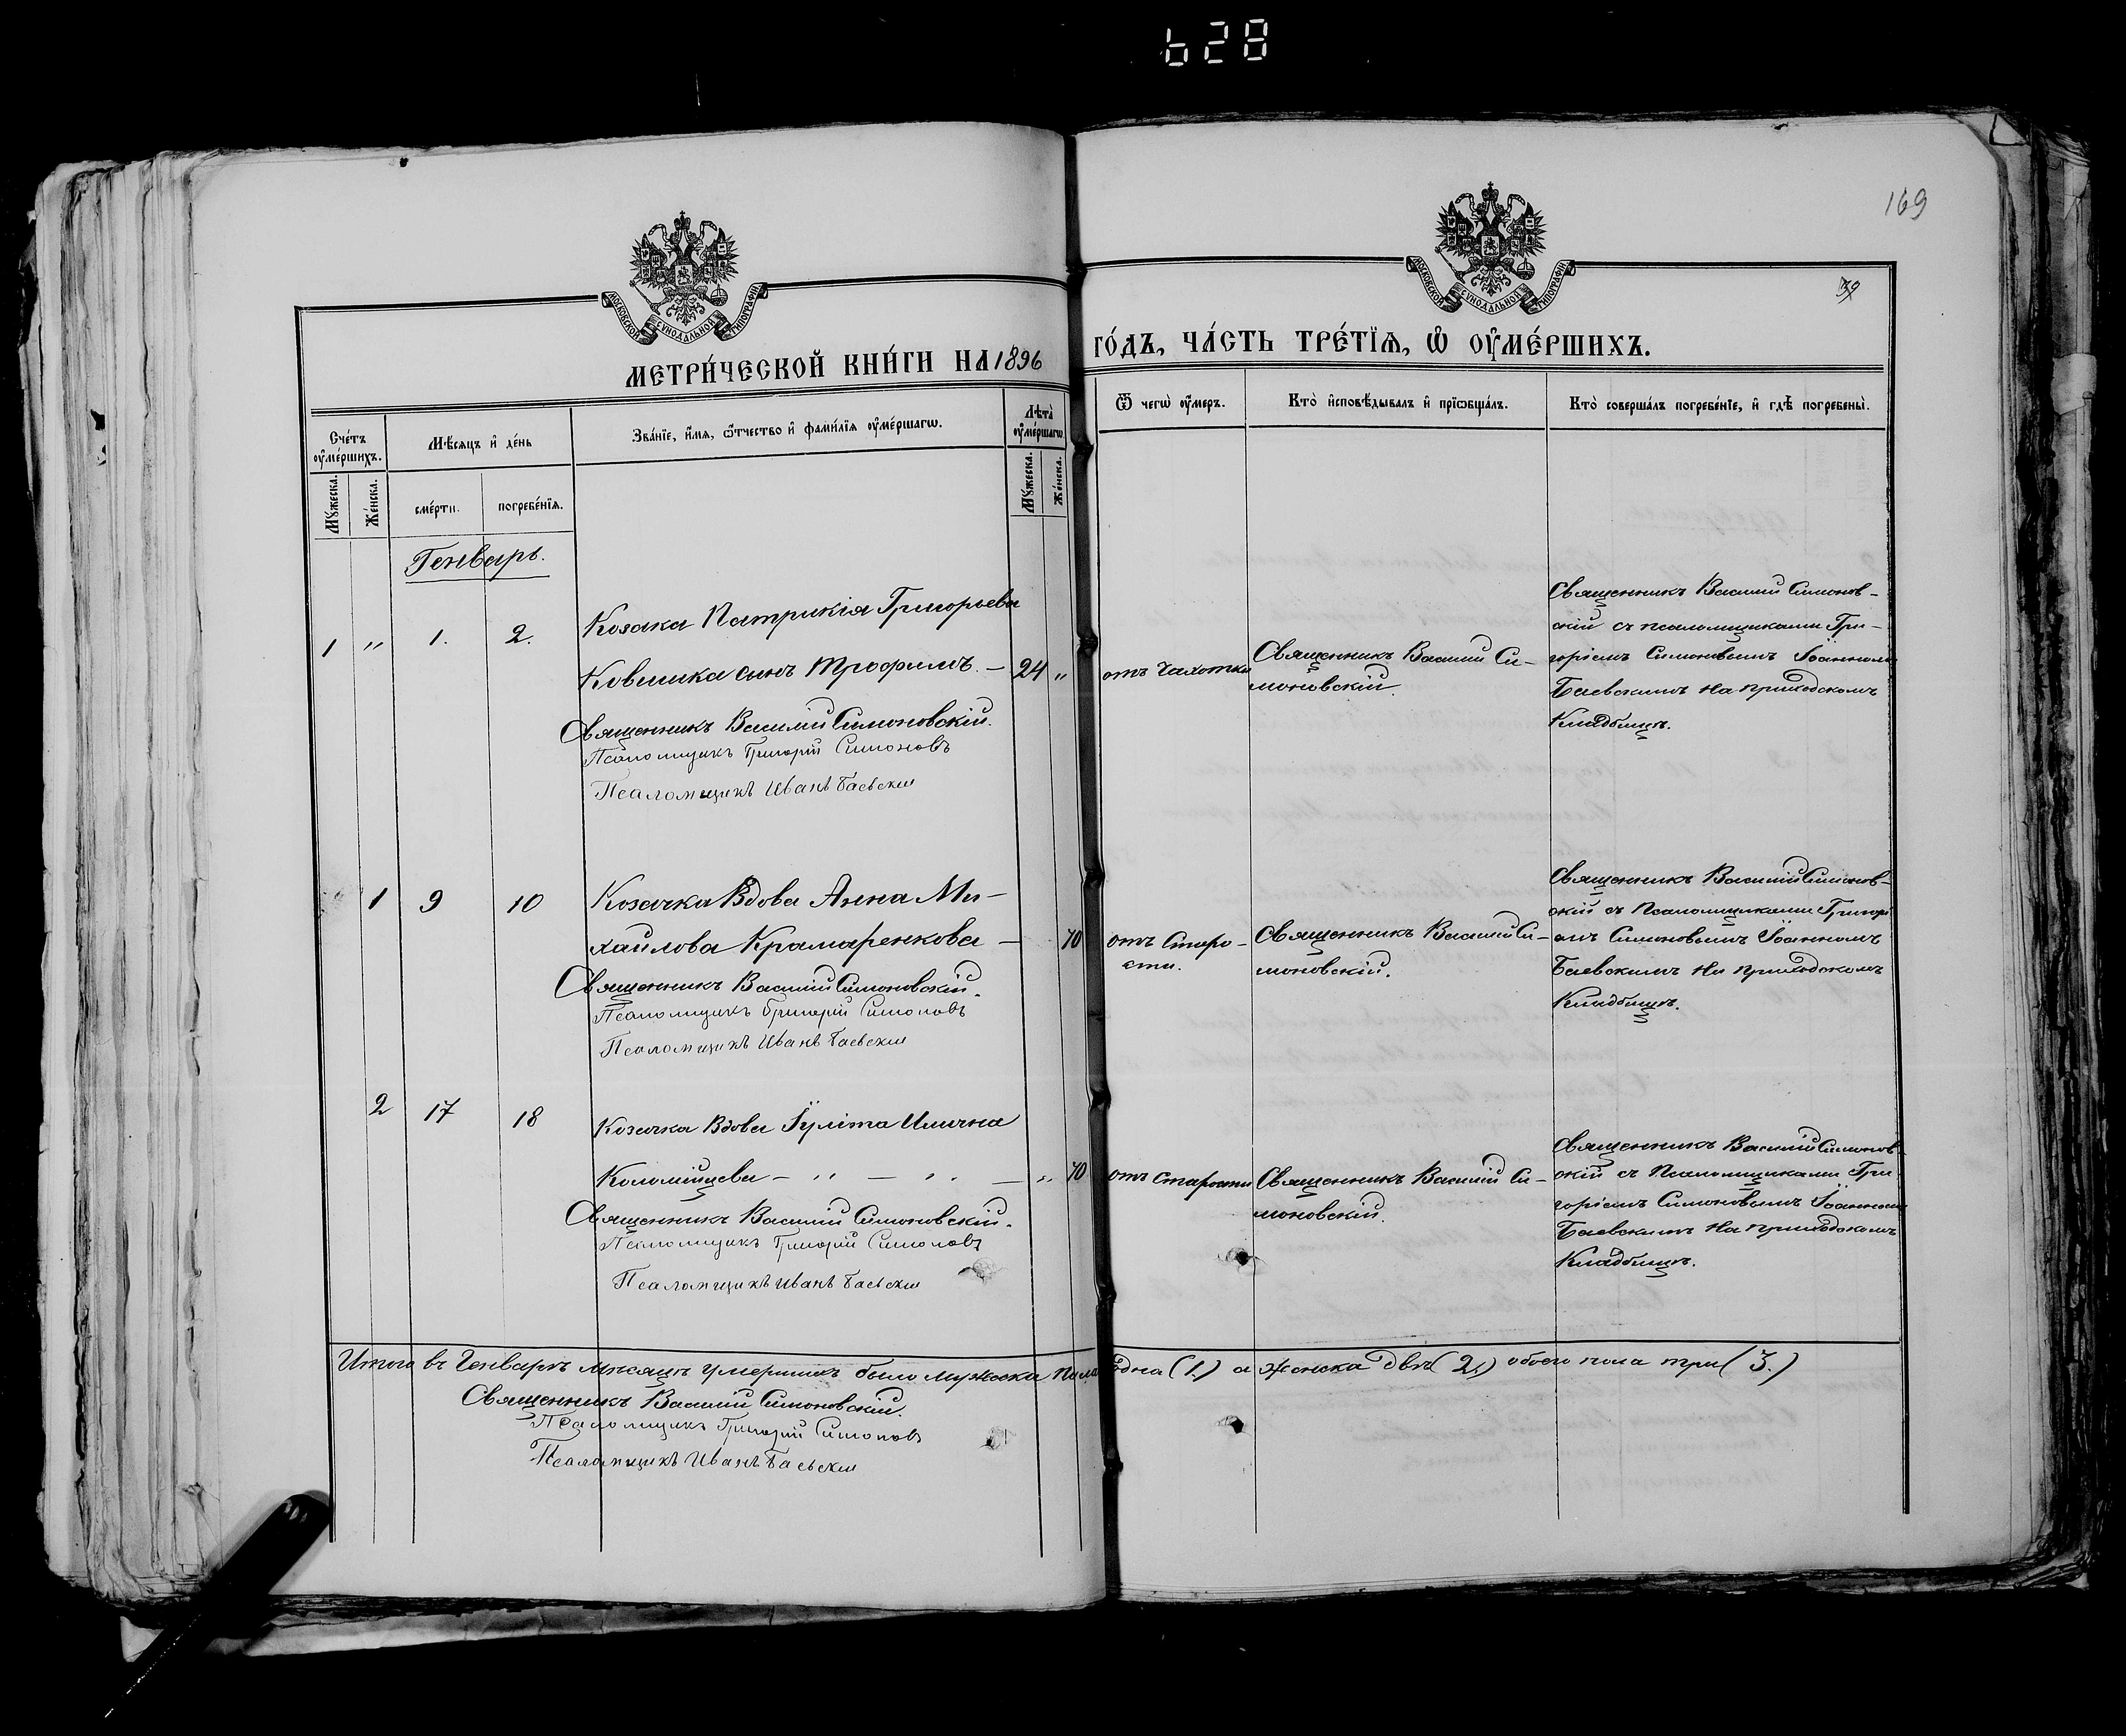 628
169
39
МОСКОВСКОЙ СѴНОДАЛЬНОЙ ТИПОГРАФІИ
МОСКОВСКОЙ СѴНОДАЛЬНОЙ ТИПОГРАФІИ
МЕТРИ́ЧЕСКОЙ КНИ́ГИ НА 1896
ГО́ДЪ, ЧА́СТЬ ТРЕ́ТЇѦ, Ѡ҆ ОУ҆МЕ́РШИХЪ.
Сче́тъ оу҆ме́ршихъ.
Мѣ́сяцъ и҆ де́нь
Зва́нїе, и҆́мя, ѻ҆́тчество и҆ фами́лїя оу҆ме́ршагѡ.
Лѣта̀ оу҆ме́ршагѡ
Ѿ чегѡ̀ оу҆́меръ.
Кто̀ и҆сповѣ́дывалъ и҆ прїѡбща́лъ.
Кто̀ соверша́лъ погребе́нїе, и҆ гдѣ̀ погребены̀.
Мꙋ́жеска.
Же́нска.
сме́рти.
погребе́нїя.
Мꙋ́жеска.
Же́нска.
Генварь.
1 " 1. 2.
Козака Патрикія Григорьева
Ковшика сынъ Трофимъ. — 24 "
Священникъ Василій Симоновскій.
Псаломщикъ Григорій Симоновъ
Псаломщикъ Иванъ Баевскій
отъ Чахотки
Священникъ Василій Си-
моновскій.
Священникъ Василій Симонов-
скій съ псаломщиками Гри-
горіемъ Симоновымъ Іоанномъ
Баевскимъ на приходскомъ
Кладбищѣ.
1 9 10
Козачка Вдова Анна Ми-
хайлова Крамаренкова — 70
Священникъ Василій Симоновскій.
Псаломщикъ Григорій Симоновъ
Псаломщикъ Иванъ Баевскій
отъ Старо-
сти.
Священникъ Василій Си-
моновскій.
Священникъ Василій Симонов-
скій съ Псаломщиками Григорі
емъ Симоновымъ Іоанномъ
Баевскимъ На приходскомъ
Кладбищѣ.
2 17 18
Козачка Вдова Іуліта Илична
Коломійцева — " — " — " 70
Священникъ Василій Симоновскій.
Псаломщикъ Григорій Симоновъ
Псаломщикъ Иванъ Баевскій
отъ старости
Священникъ Василій Си-
моновскій.
Священникъ Василій Симонов-
скій съ Псаломщиками Гри-
горіемъ Симоновымъ Іоанномъ
Баевскимъ На приходскомъ
Кладбищѣ.
Итого въ Генварѣ мѣсяцѣ умершихъ было мужеска пола одна (1.) а женска двѣ (2.) обоего пола три (3.)
Священникъ Василій Симоновскій.
Псаломщикъ Григорій Симоновъ
Псаломщикъ Иванъ Баевскій